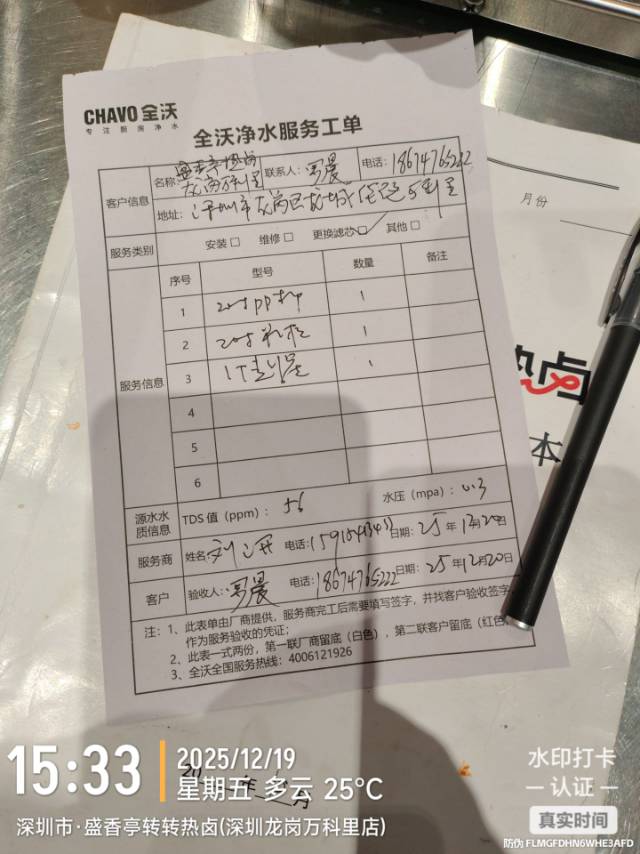 CHAVO 全沃
专注厨房净水
全沃净水服务工单
客户信息
名称: 盛香亭热卤 龙岗万科里
联系人: 易晨
电话: 18674765222
地址: 深圳市龙岗区龙城 万科里
服务类别
安装□ 维修□ 更换滤芯☑ 其他□
服务信息
序号 型号 数量 备注
1 20寸PP棉 1
2 20寸 1
3 1
4
5
6
源水水质信息
TDS值(ppm): 56 水压(mpa): 0.3
服务商
姓名: 刘 电话: 日期: 25年12月20日
客户
验收人: 易晨 电话: 18674765222 日期: 25年12月20日
注: 1、此表单由厂商提供,服务商完工后需要填写签字,并找客户验收签字,
作为服务验收的凭证;
2、此表一式两份,第一联厂商留底(白色),第二联客户留底(红色)
3、全沃全国服务热线: 4006121926
月份
热卤
本
20 年 月
15:33
2025/12/19
星期五 多云 25°C
深圳市·盛香亭转转热卤(深圳龙岗万科里店)
水印打卡
认证
真实时间
防伪 FLMGFDHN6WHE3AFD